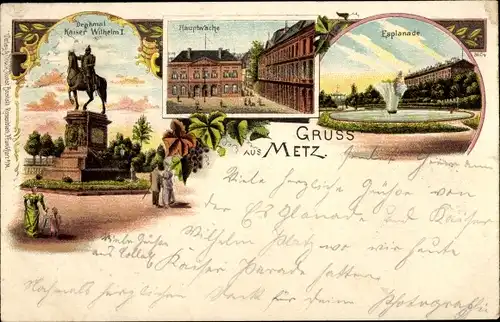 Denkmal
Kaiser Wilhelm I.
Hauptwache
Esplanade
GRUSS
AUS METZ.
Viele herzliche Grüße von
der Esplanade und Kaiser
Wilhelm Platz wo wir heute
Kaiser Parade hatten
Viele Grüße
aus
Nochmals herzlichen Dank für deine Photografie